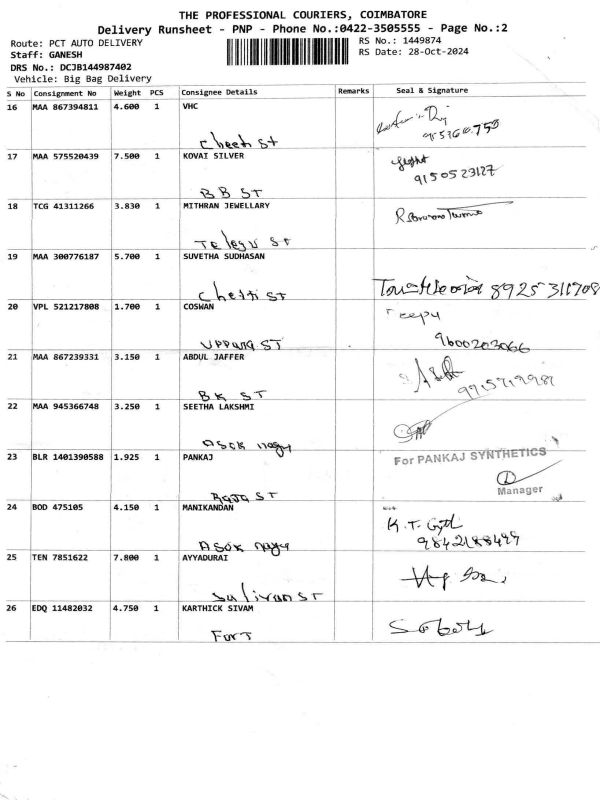 THE PROFESSIONAL COURIERS, COIMBATORE
Delivery Runsheet - PNP - Phone No.:0422-3505555 - Page No.:2
Route: PCT AUTO DELIVERY RS No.: 1449874
Staff: GANESH RS Date: 28-Oct-2024
DRS No.: DCJB144987402
Vehicle: Big Bag Delivery
S No Consignment No Weight PCS Consignee Details Remarks Seal & Signature
16 MAA 867394811 4.600 1 VHC
Cheeti St
17 MAA 575520439 7.500 1 KOVAI SILVER
9150523127
BB ST
18 TCG 41311266 3.830 1 MITHRAN JEWELLARY
Telegu St
19 MAA 300776187 5.700 1 SUVETHA SUDHASAN
Chetti St 8925311708
20 VPL 521217808 1.700 1 COSWAN
UPPUNG ST 9600203066
21 MAA 867239331 3.150 1 ABDUL JAFFER
BK ST
22 MAA 945366748 3.250 1 SEETHA LAKSHMI
Asok nagy
23 BLR 1401390588 1.925 1 PANKAJ For PANKAJ SYNTHETICS
Raja ST Manager
24 BOD 475105 4.150 1 MANIKANDAN
K.T.
Asok nagy 9842188499
25 TEN 7851622 7.800 1 AYYADURAI
Sulivan ST
26 EDQ 11482032 4.750 1 KARTHICK SIVAM
Fort